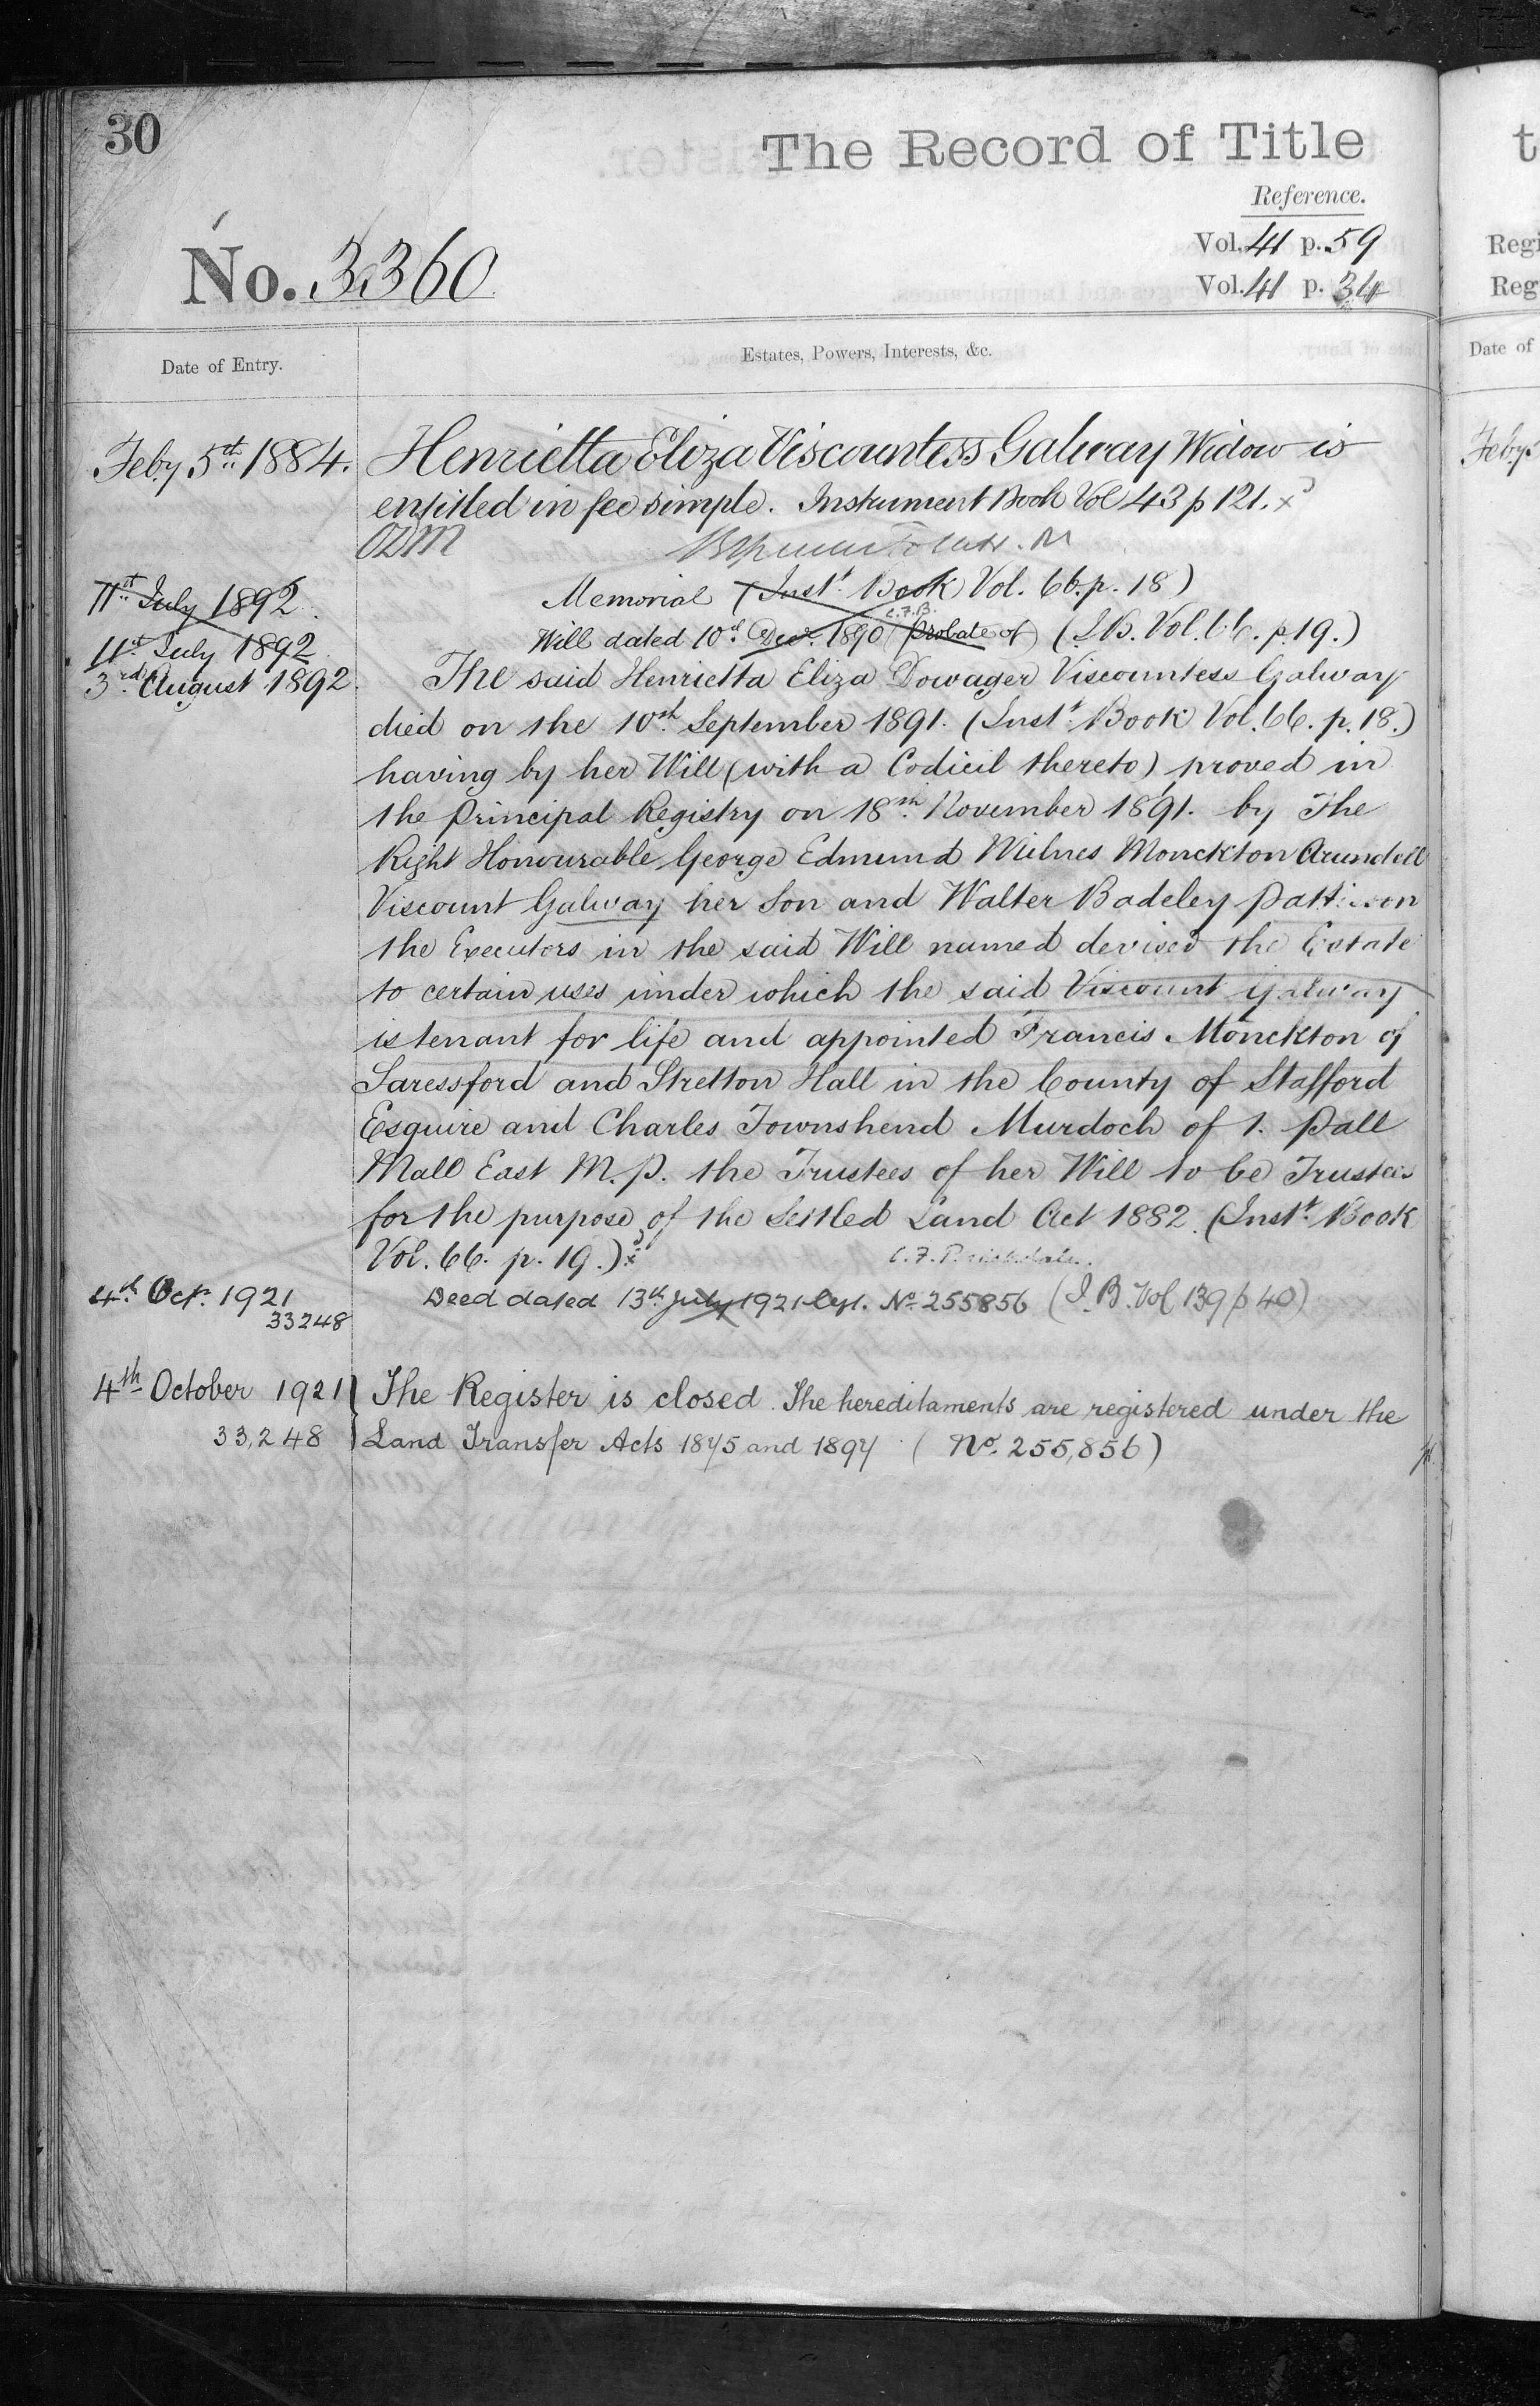 30
The Record of Title
Reference.
Vol. 41 p. 59
No. 3360
Vol. 41 p. 34
Date of Entry.
Estates, Powers, Interests, &c.
Feby 5th 1884. Henrietta Eliza Viscountess Galway Widow is
entitled in fee simple. Instrument Book Vol 43 p 121. x
11st July 1892. Memorial (Instt. Book Vol. 66. p. 18)
C.F.B.
11st July 1892 Will dated 10th Decr. 1890 (Probate of) (I.B. Vol. 66. p. 19.)
3rd August 1892. The said Henrietta Eliza Dowager Viscountess Galway
died on the 10th September 1891. (Instt. Book Vol. 66. p. 18.)
having by her Will (with a Codicil thereto) proved in
the Principal Registry on 18th November 1891. by The
Right Honourable George Edmund Milnes Monckton Arundell
Viscount Galway her Son and Walter Badeley Pattisson
the Executors in the said Will named devised the Estate
to certain uses under which the said Viscount Galway
is tenant for life and appointed Francis Monckton of
Saressford and Stretton Hall in the County of Stafford
Esquire and Charles Townshend Murdoch of 1. Pall
Mall East M.P. the Trustees of her Will to be Trustees
for the purpose of the Settled Land Act 1882. (Instt. Book
Vol. 66. p. 19.) x
4th Octr. 1921 Deed dated 13th July 1921 No. 255856 (I.B. Vol 139 p 40)
33248
4th October 1921 The Register is closed. The hereditaments are registered under the
33,248 Land Transfer Acts 1875 and 1897 (No. 255,856)
t
Regi
Reg
Date of
Feby